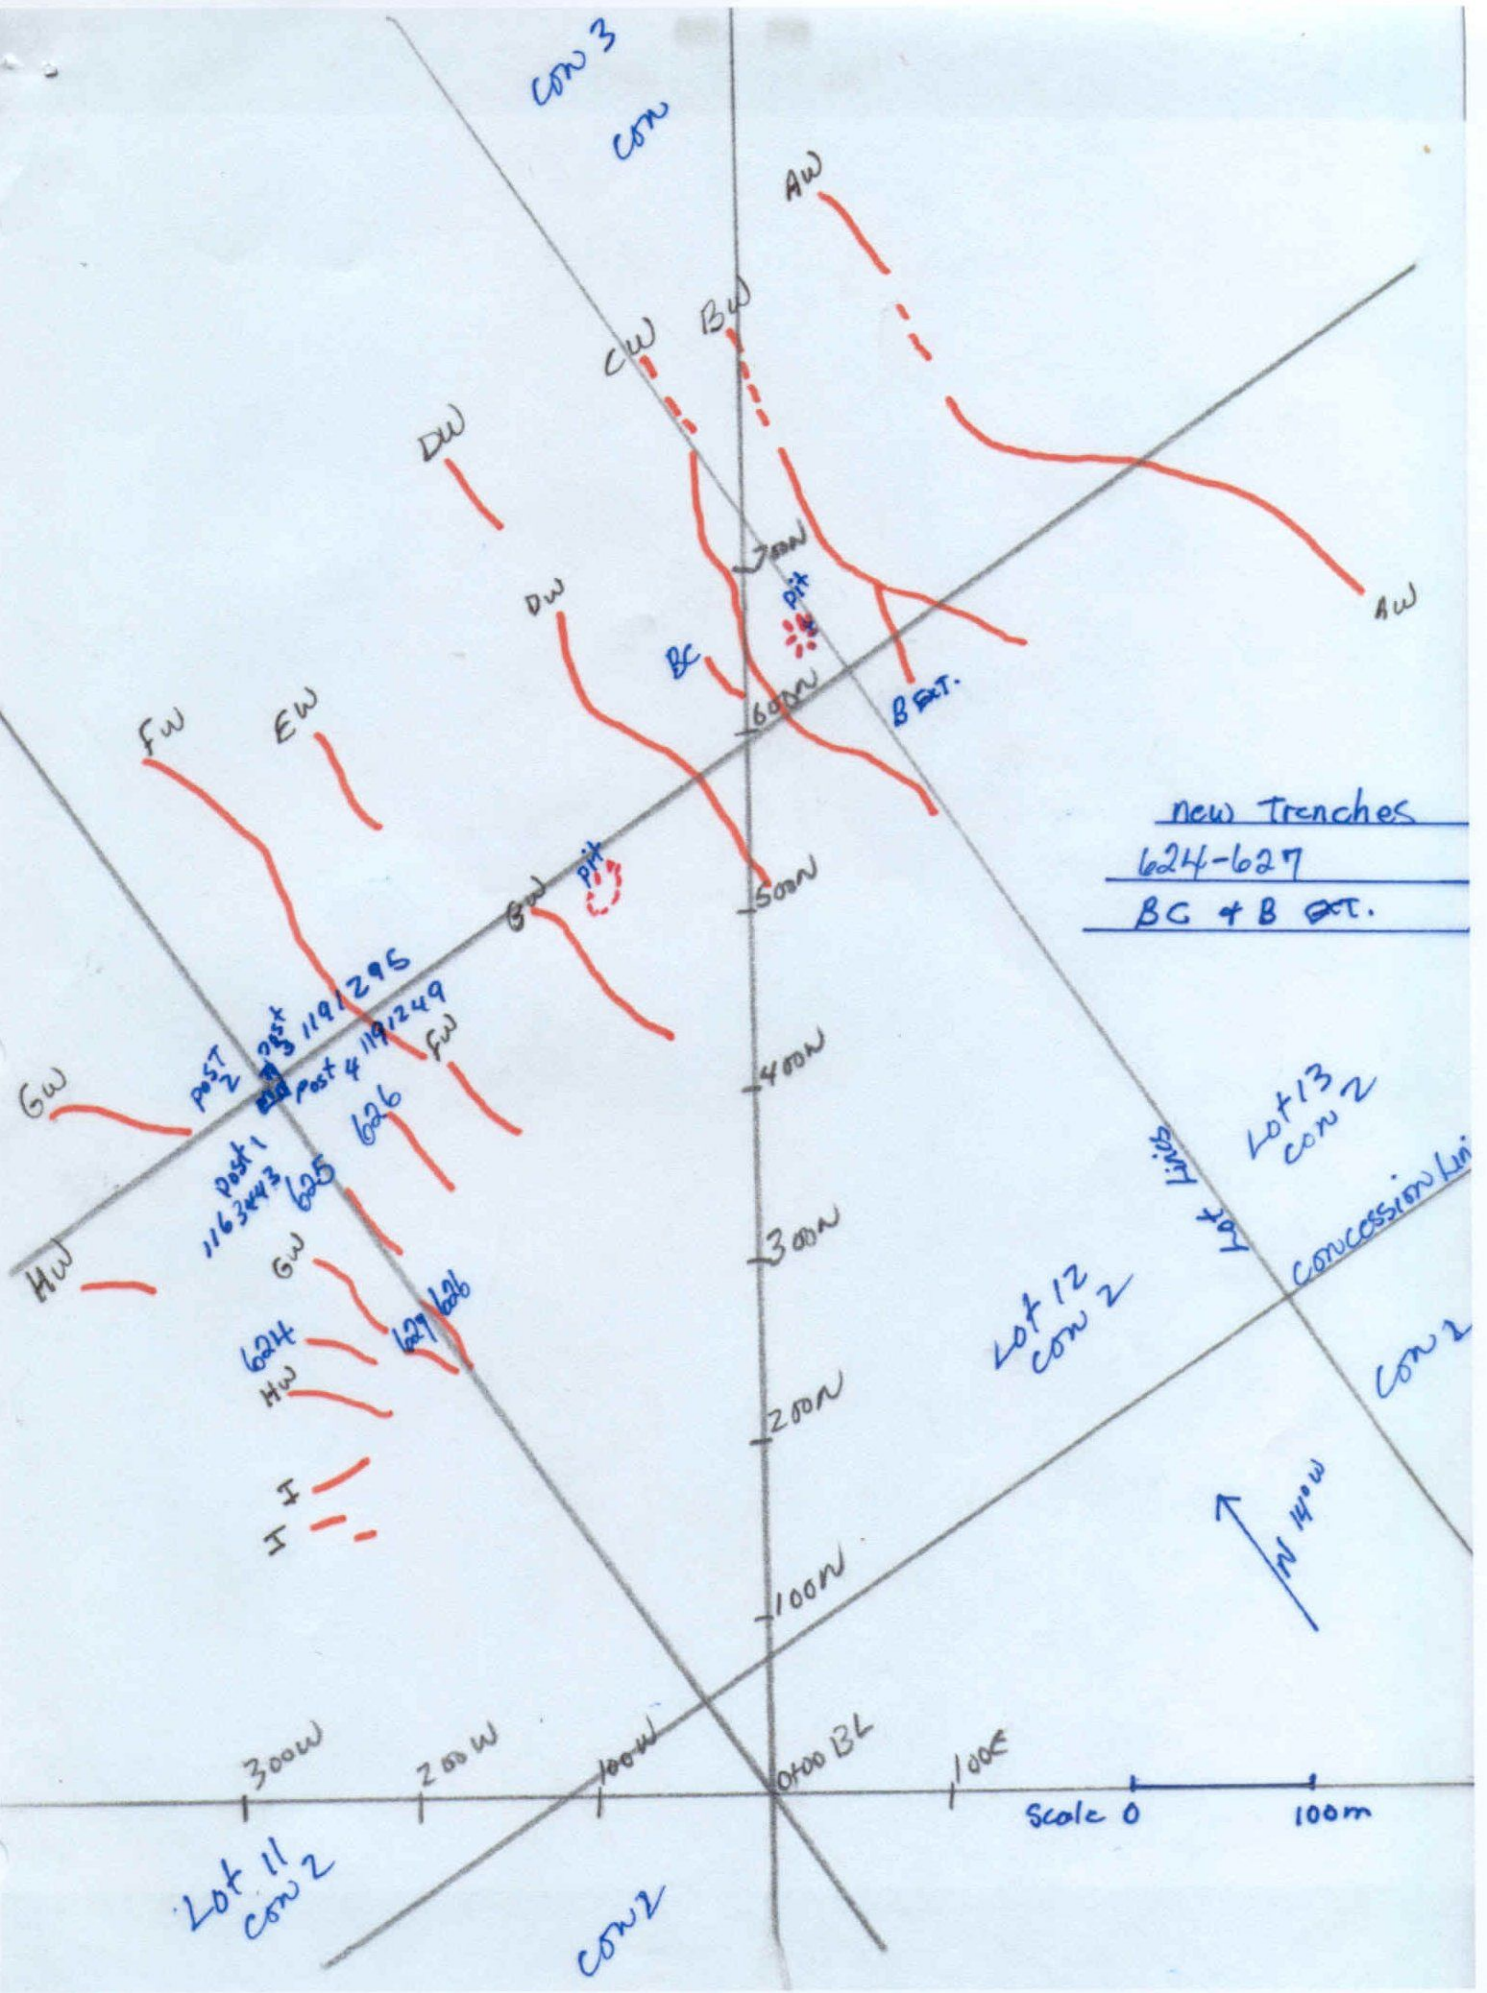 con 3
con
AW
BW
CW
DW
700N
pit
DW
AW
BC
600N
B EXT.
FW
EW
new Trenches
624-627
BC & B EXT.
pit
500N
1191295
1191249
post 3
post 2
Post 4
FW
400N
GW
626
Post 1
1163443
625
Lot 13
con 2
Lot Lines
Concession Lin
HW
GW
300N
624
627
626
Lot 12
con 2
HW
200N
I
I
N 14° W
100N
300W
200W
100W
0+00 BL
100E
Scale 0
100m
Lot 11
con 2